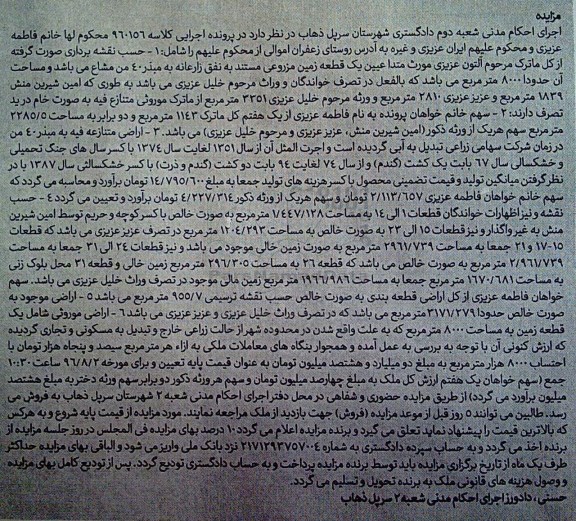 مزایده
اجرای احکام مدنی شعبه دوم دادگستری شهرستان سرپل ذهاب در نظر دارد در پرونده اجرایی کلاسه ۹۶۰۱۵۶ محکوم لها خانم فاطمه
عزیزی و محکوم علیهم ایران عزیزی و غیره به آدرس روستای زعفران اموالی از محکوم علیهم را شامل: ۱- حسب نقشه برداری صورت گرفته
از کل ماترک مرحوم آلتون عزیزی مورث متداعیین یک قطعه زمین مزروعی مستند به نفق زارعانه به مبذر ۴۰ من مشاع می باشد و مساحت
آن حدودا ۸۰۰۰ متر مربع می باشد که بالفعل در تصرف خواندگان و وراث مرحوم خلیل عزیزی می باشد به طوری که امین شیرین منش
۱۸۳۹ متر مربع و عزیز عزیزی ۲۸۱۰ متر مربع و ورثه مرحوم خلیل عزیزی ۳۳۵۱ متر مربع از ماترک موروثی متنازع فیه به صورت خام در ید
تصرف دارند: ۲- سهم خانم خواهان پرونده به نام فاطمه عزیزی از یک هفتم کل ماترک ۱۱۴۳ متر مربع و دو برابر به مساحت ۲۲۸۵/۵
متر مربع سهم هریک از ورثه ذکور (امین شیرین منش، عزیز عزیزی و مرحوم خلیل عزیزی) می باشد. ۳- اراضی متنازعه فیه به مبذر ۴۰ من
در زمان شرکت سهامی زراعی تبدیل به آبی گردیده است و اجرت المثل آن از سال ۱۳۵۱ لغایت سال ۱۳۷۴ با کسر سال های جنگ تحمیلی
و خشکسالی سال ۶۷ بابت یک کشت (گندم) و از سال ۷۴ لغایت ۹۴ بابت دو کشت (گندم و ذرت) با کسر خشکسالی سال ۱۳۸۷ با در
نظر گرفتن میانگین تولید و قیمت تضمینی محصول با کسر هزینه های تولید جمعا به مبلغ ۱۴/۷۹۵/۶۰۰ تومان برآورد و محاسبه می گردد که
سهم خانم خواهان فاطمه عزیزی ۲/۱۱۳/۶۵۷ تومان و سهم هریک از ورثه ذکور ۴/۲۲۷/۳۱۴ تومان برآورد و تعیین می گردد ۴- حسب
نقشه و نیز اظهارات خواندگان قطعات ۱ الی ۱۴ به مساحت ۱/۴۴۷/۱۲۸ متر مربع به صورت خالص با کسر کوچه و حریم توسط امین شیرین
منش به غیر واگذار و نیز قطعات ۱۵ الی ۲۳ به صورت خالص به مساحت ۱۲۰۴/۲۹۳ متر مربع در تصرف عزیز عزیزی می باشد که قطعات
۱۵-۱۷ و ۲۱ جمعا به مساحت ۲۹۶۱/۷۳۹ متر مربع به صورت زمین خالی موجود می باشد و نیز قطعات ۲۴ الی ۳۱ جمعا به مساحت
۲/۹۶۱/۷۳۹ متر مربع به صورت خالص می باشد که قطعه ۲۶ به مساحت ۲۹۶/۳۰۵ متر مربع زمین خالی و قطعه ۳۱ محل بلوک زنی
به مساحت ۱۶۷۰/۶۸۱ متر مربع جمعا به مساحت ۱۹۶۶/۹۸۶ متر مربع زمین مالی موجود در تصرف وراث خلیل عزیزی می باشد. سهم
خواهان فاطمه عزیزی از کل اراضی قطعه بندی به صورت خالص حسب نقشه ترسیمی ۹۵۵/۷ متر مربع می باشد ۵- اراضی موجود به
صورت خالص حدودا ۳۱۷۷/۲۷۹ متر مربع می باشد که در تصرف وراث خلیل عزیزی و عزیز عزیزی می باشد ۶- اراضی موروثی شامل یک
قطعه زمین به مساحت ۸۰۰۰ متر مربع که به علت واقع شدن در محدوده شهر از حالت زراعی خارج و تبدیل به مسکونی و تجاری گردیده
که ارزش کنونی آن با توجه به بررسی به عمل آمده و همجوار بنگاه های معاملات ملکی به ازاء هر متر مربع سیصد و پنجاه هزار تومان با
احتساب ۸۰۰۰ هزار متر مربع به مبلغ دو میلیارد و هشتصد میلیون تومان به عنوان قیمت پایه تعیین و برای مورخه ۹۶/۸/۲ ساعت ۱۰:۳۰
جمع (سهم خواهان یک هفتم ارزش کل ملک به مبلغ چهارصد میلیون تومان و سهم هر ورثه ذکور دو برابر سهم ورثه دختر به مبلغ هشتصد
میلیون برآورد می گردد) از طریق مزایده حضوری و شفاهی در محل دفتر اجرای احکام مدنی شعبه ۲ شهرستان سرپل ذهاب به فروش می
رسد. طالبین می توانند ۵ روز قبل از موعد مزایده (فروش) جهت بازدید از ملک مراجعه نمایند. مورد مزایده از قیمت پایه شروع و به هرکس
که بالاترین قیمت را پیشنهاد نماید تعلق می گیرد و برنده مزایده اعلام می گردد ۱۰ درصد بهای مزایده فی المجلس در روز جلسه مزایده از
برنده اخذ می گردد و به حساب سپرده دادگستری به شماره ۲۱۷۱۲۹۳۷۵۷۰۰۴ نزد بانک ملی واریز می شود و الباقی بهای مزایده حداکثر
ظرف یک ماه از تاریخ برگزاری مزایده باید توسط برنده مزایده پرداخت و به حساب دادگستری تودیع گردد. پس از تودیع کامل بهای مزایده
و وصول هزینه های قانونی ملک به برنده تحویل و تسلیم می گردد.
حسنی، دادورز اجرای احکام مدنی شعبه ۲ سرپل ذهاب